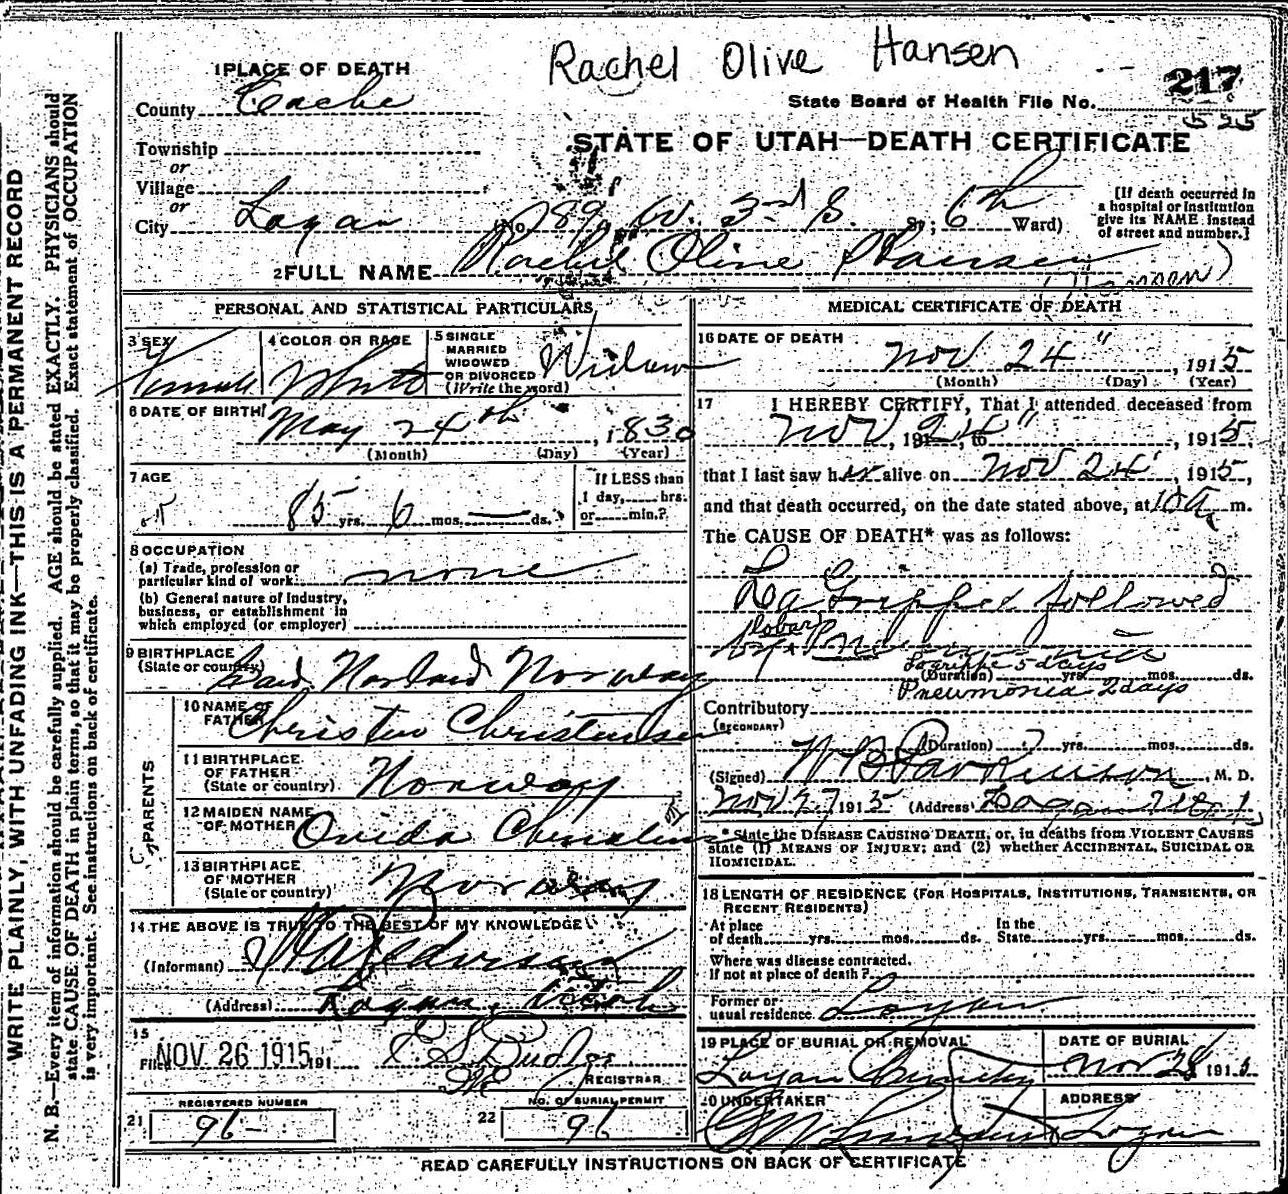 Rachel Olive Hansen
217
1 PLACE OF DEATH
County Cache
State Board of Health File No.
525
Township
or
Village
or
City Logan
STATE OF UTAH—DEATH CERTIFICATE
No 789 W. 3rd S. St; 6th Ward)
[If death occurred in a hospital or institution give its NAME instead of street and number.]
2 FULL NAME Rachel Oline Hansen
(Hansen)
PERSONAL AND STATISTICAL PARTICULARS
3 SEX Female
4 COLOR OR RACE White
5 SINGLE MARRIED WIDOWED OR DIVORCED (Write the word) Widow
6 DATE OF BIRTH May 24th, 1830
(Month) (Day) (Year)
7 AGE
85 yrs. 6 mos. — ds.
If LESS than 1 day, hrs. or min.?
8 OCCUPATION
(a) Trade, profession or particular kind of work none
(b) General nature of Industry, business, or establishment in which employed (or employer)
9 BIRTHPLACE
(State or country) Norland Norway
PARENTS
10 NAME OF FATHER Christen Christensen
11 BIRTHPLACE OF FATHER (State or country) Norway
12 MAIDEN NAME OF MOTHER
13 BIRTHPLACE OF MOTHER (State or country) Norway
14 THE ABOVE IS TRUE TO THE BEST OF MY KNOWLEDGE
(Informant)
(Address) Logan, Utah
15
Filed NOV. 26 1915 191
REGISTRAR
REGISTERED NUMBER
21 96
NO. OF BURIAL PERMIT
22 96
MEDICAL CERTIFICATE OF DEATH
16 DATE OF DEATH
Nov 24", 1915
(Month) (Day) (Year)
17 I HEREBY CERTIFY, That I attended deceased from
Nov, 191 24" to , 1915,
that I last saw her alive on Nov 24, 1915,
and that death occurred, on the date stated above, at 10 A. m.
The CAUSE OF DEATH* was as follows:
La Grippe followed
by Lobar Pneumonia
Lagrippe 5 days
(Duration) yrs. mos. ds.
Pneumonia 2 days
Contributory
(SECONDARY)
(Duration) 7 yrs. mos. ds.
(Signed) W B Parkinson, M. D.
Nov 27 1915 (Address) Logan
* State the DISEASE CAUSING DEATH, or, in deaths from VIOLENT CAUSES state (1) MEANS OF INJURY; and (2) whether ACCIDENTAL, SUICIDAL OR HOMICIDAL.
18 LENGTH OF RESIDENCE (FOR HOSPITALS, INSTITUTIONS, TRANSIENTS, OR RECENT RESIDENTS)
At place of death yrs. mos. ds. In the State yrs. mos. ds.
Where was disease contracted.
If not at place of death?
Former or usual residence Logan
19 PLACE OF BURIAL OR REMOVAL
Logan
DATE OF BURIAL
Nov 28 191
20 UNDERTAKER
ADDRESS
Logan
READ CAREFULLY INSTRUCTIONS ON BACK OF CERTIFICATE
WRITE PLAINLY, WITH UNFADING INK—THIS IS A PERMANENT RECORD
N. B.—Every item of information should be carefully supplied. AGE should be stated EXACTLY. PHYSICIANS should
state CAUSE OF DEATH in plain terms, so that it may be properly classified. Exact statement of OCCUPATION
is very important. See instructions on back of certificate.